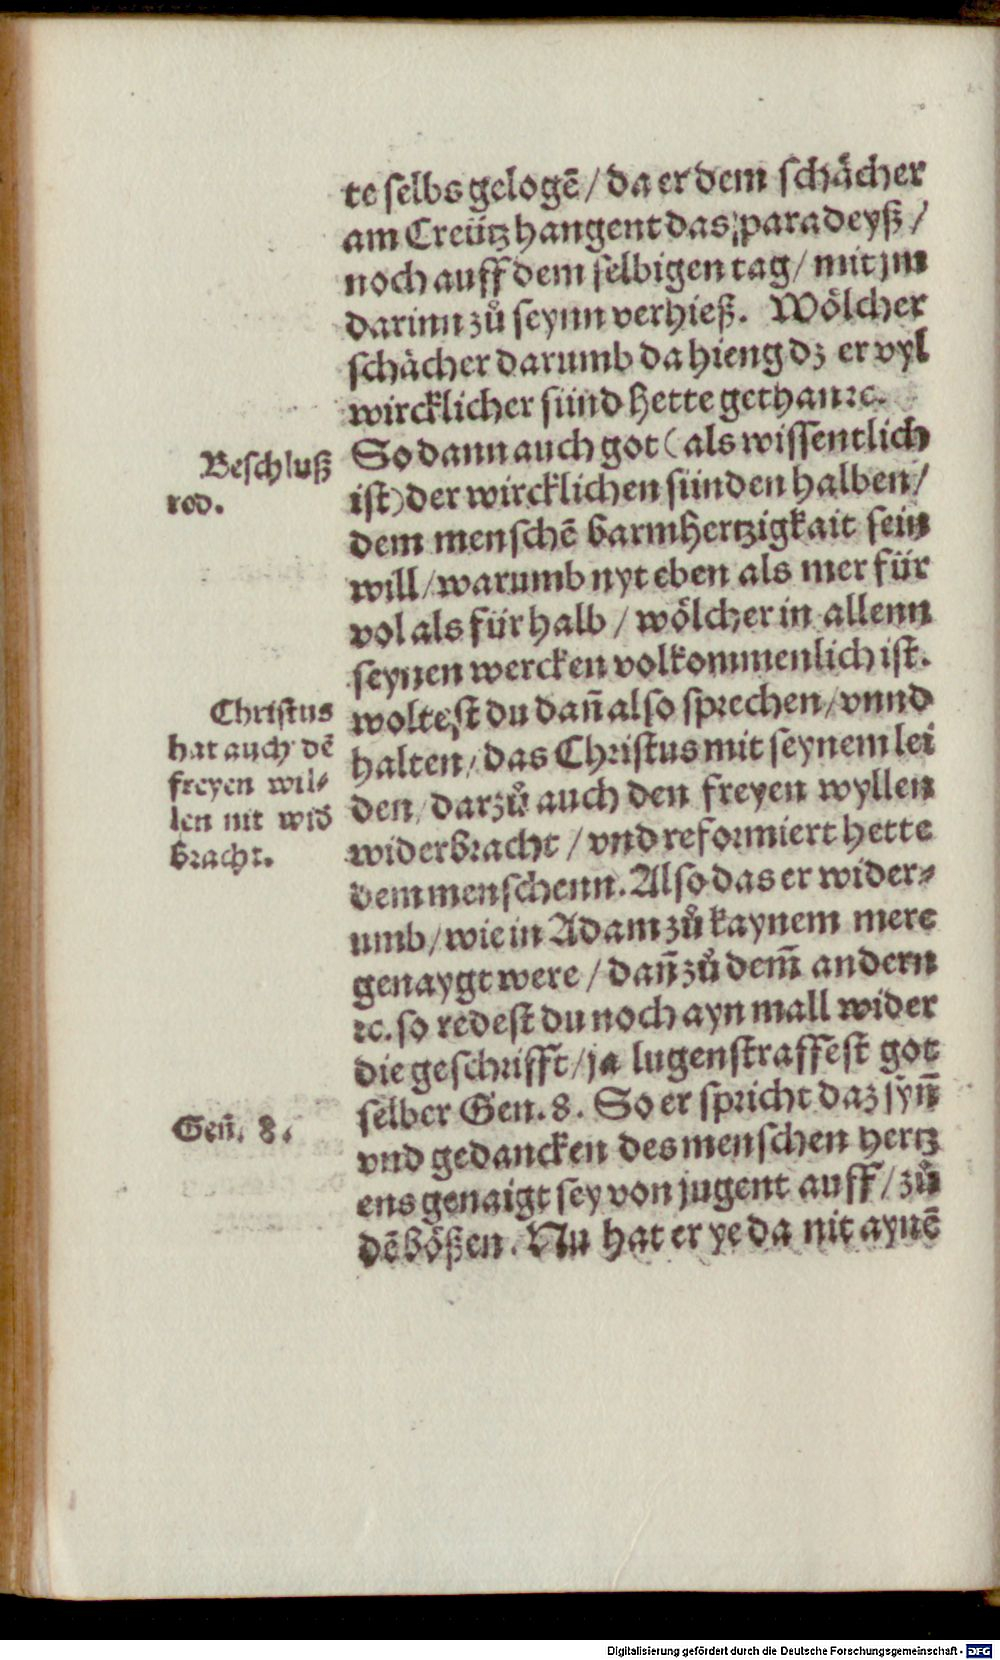 te selbs gelogē / da er dem schächer
am Creütz hangent das paradeyß /
noch auff dem selbigen tag / mit jm
darinn zů seynn verhieß. Wölcher
schächer darumb da hieng dz er vyl
wircklicher sünd hette gethan ꝛc.
So dann auch got (als wissentlich
ist) der wircklichen sünden halben /
dem menschē barmhertzigkait sein
will / warumb nyt eben als mer für
vol als für halb / wölcher in allenn
seynen wercken volkommenlich ist.
woltest du dañ also sprechen / vnnd
halten / das Christus mit seynem lei
den / darzů auch den freyen wyllen
widerbracht / vnd reformiert hette
dem menschenn. Also das er wider⸗
umb / wie in Adam zů kaynem mere
genaygt were / dañ zů dem̃ andern
ꝛc. so redest du noch ayn mall wider
die geschrifft / ja lugenstraffest got
selber Gen. 8. So er spricht daz syñ
vnd gedancken des menschen hertz
ens genaigt sey von jugent auff / zů
dē bößen. Nu hat er ye da nit aynē
Beschluß
rod.
Christus
hat auch dē
freyen wil⸗
len nit wid̕
bracht.
Geñ. 8.
Digitalisierung gefördert durch die Deutsche Forschungsgemeinschaft - DFG